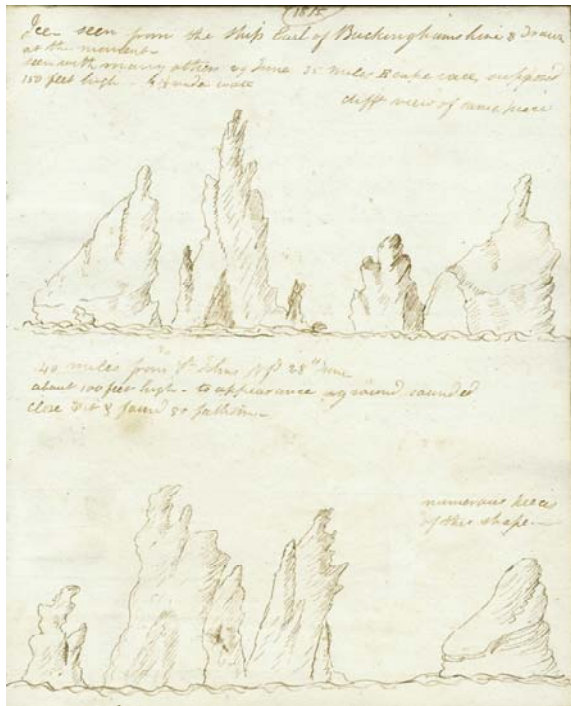 1815
Ice seen from the Ship Earl of Buckinghamshire & Drawn
at the moment
seen with many others 29 June 35 miles E cape race, supposed
150 feet high -
difft view of same piece
40 miles from St Johns Nfd 28th June
about 100 feet high - to appearance aground sounded
close to it & found 80 fathom -
numerous pieces
of this shape -